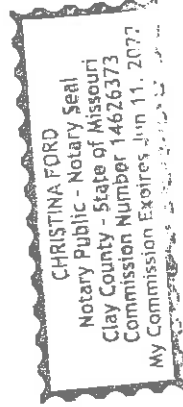 CHRISTINA FORD
Notary Public - Notary Seal
Clay County - State of Missouri
Commission Number 14626373
My Commission Expires Jun 11,